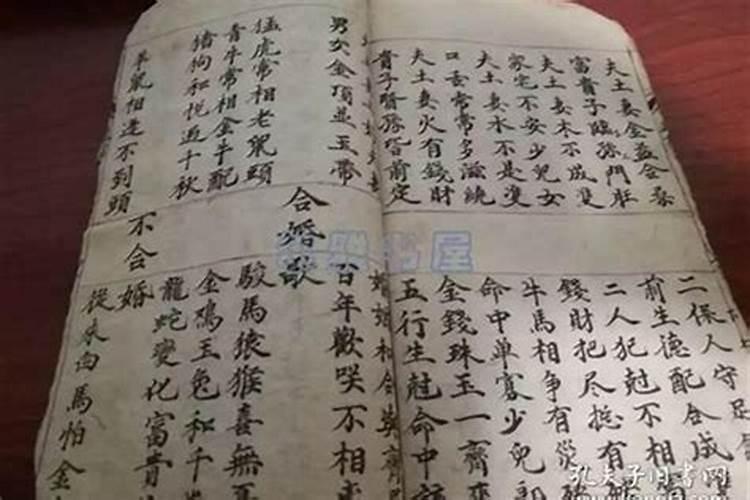 夫土妻金益合
富貴子臨孫門
夫土妻木不成雙
家宅不安少兒女
夫土妻水不是雙
口舌常常多滋繞
夫土妻火有錢財
貴子賢孫皆前定
男女金項並玉帶
猛虎常相老鼠頭
青牛常相金牛配
猪狗和悦過千秋
羊鼠相逢不到頭
二保人守足
前生德配合成
二人犯尅不相
錢財把尽
牛馬相争有災
命中单寡少兒郎
金錢珠玉一齊來
五行生尅命中
婚姻和合
百年歡咲不相
合婚歌
駿馬猿猴喜無
金鷄玉兔和千
龍蛇變化富貴
不合婚
從來白馬怕金
孔夫子旧書网